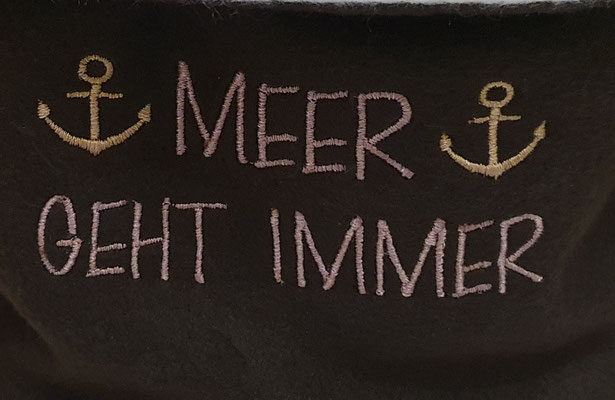 MEER
GEHT IMMER